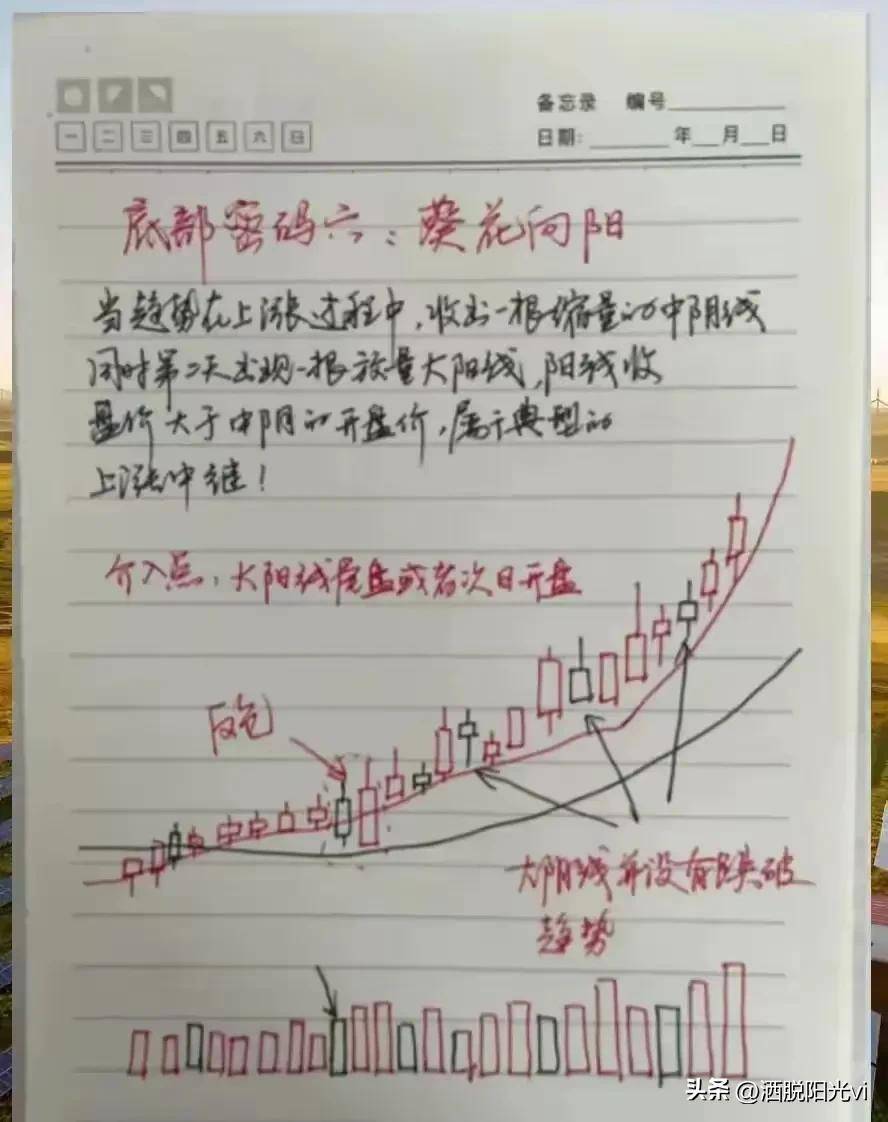 备忘录 编号
一 二 三 四 五 六 日
日期: 年 月 日
底部密码六:葵花向阳
当趋势在上涨过程中,收出一根缩量的中阴线
同时第二天出现一根放量大阳线,阳线收
盘价大于中阴的开盘价,属于典型的
上涨中继!
介入点:大阳线尾盘或者次日开盘
反包
大阴线并没有跌破
趋势
头条 @洒脱阳光vi